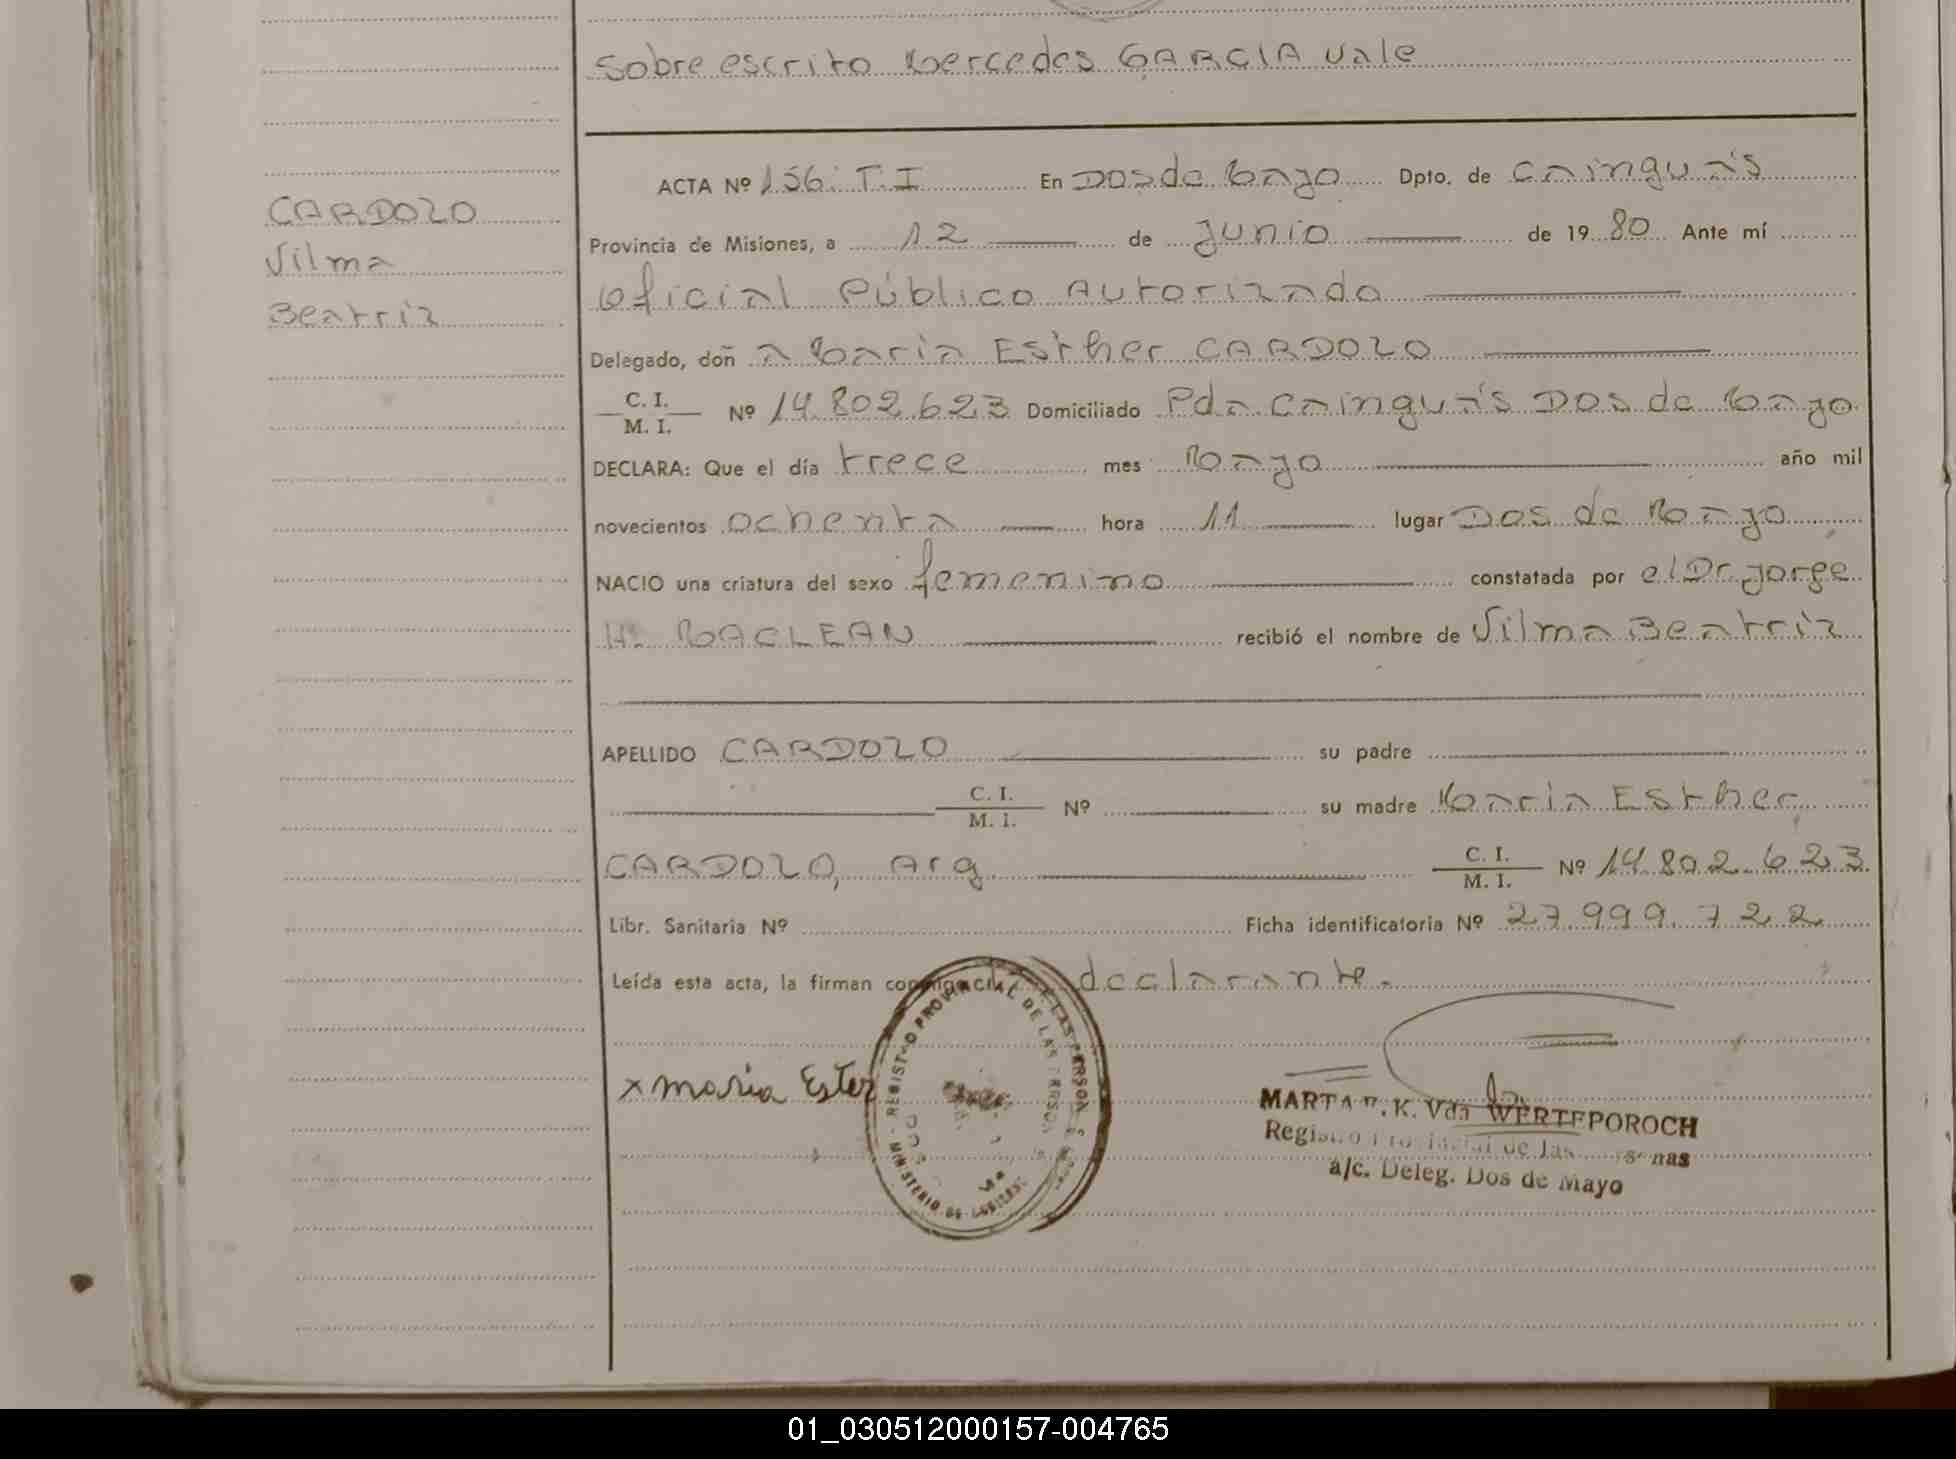 Sobre escrito Mercedes GARCIA Vale
CARDOZO
Vilma
Beatriz
ACTA Nº 156. T.I En Dos de Mayo Dpto. de Cainguás
Provincia de Misiones, a 12 de junio de 1980 Ante mí
Oficial Público Autorizado
Delegado, doñ a Maria Esther CARDOZO
C. I.
M. I. Nº 14.802.623 Domiciliado Pda Cainguás Dos de Mayo
DECLARA: Que el día trece mes Mayo año mil
novecientos ochenta hora 11 lugar Dos de Mayo
NACIO una criatura del sexo femenino constatada por el Dr. Jorge
H. MACLEAN recibió el nombre de Vilma Beatriz
APELLIDO CARDOZO su padre
C. I.
M. I. Nº su madre Maria Esther
CARDOZO, Arg. C. I.
M. I. Nº 14.802.623
Libr. Sanitaria Nº Ficha identificatoria Nº 27.999.722
Leída esta acta, la firman conmigo declarante.
x maria Ester
REGISTRO PROVINCIAL DE LAS
MINISTERIO DE
MARTA K. Vda WERTEPOROCH
Registro Provincial de las
a/c. Deleg. Dos de Mayo
01_030512000157-004765